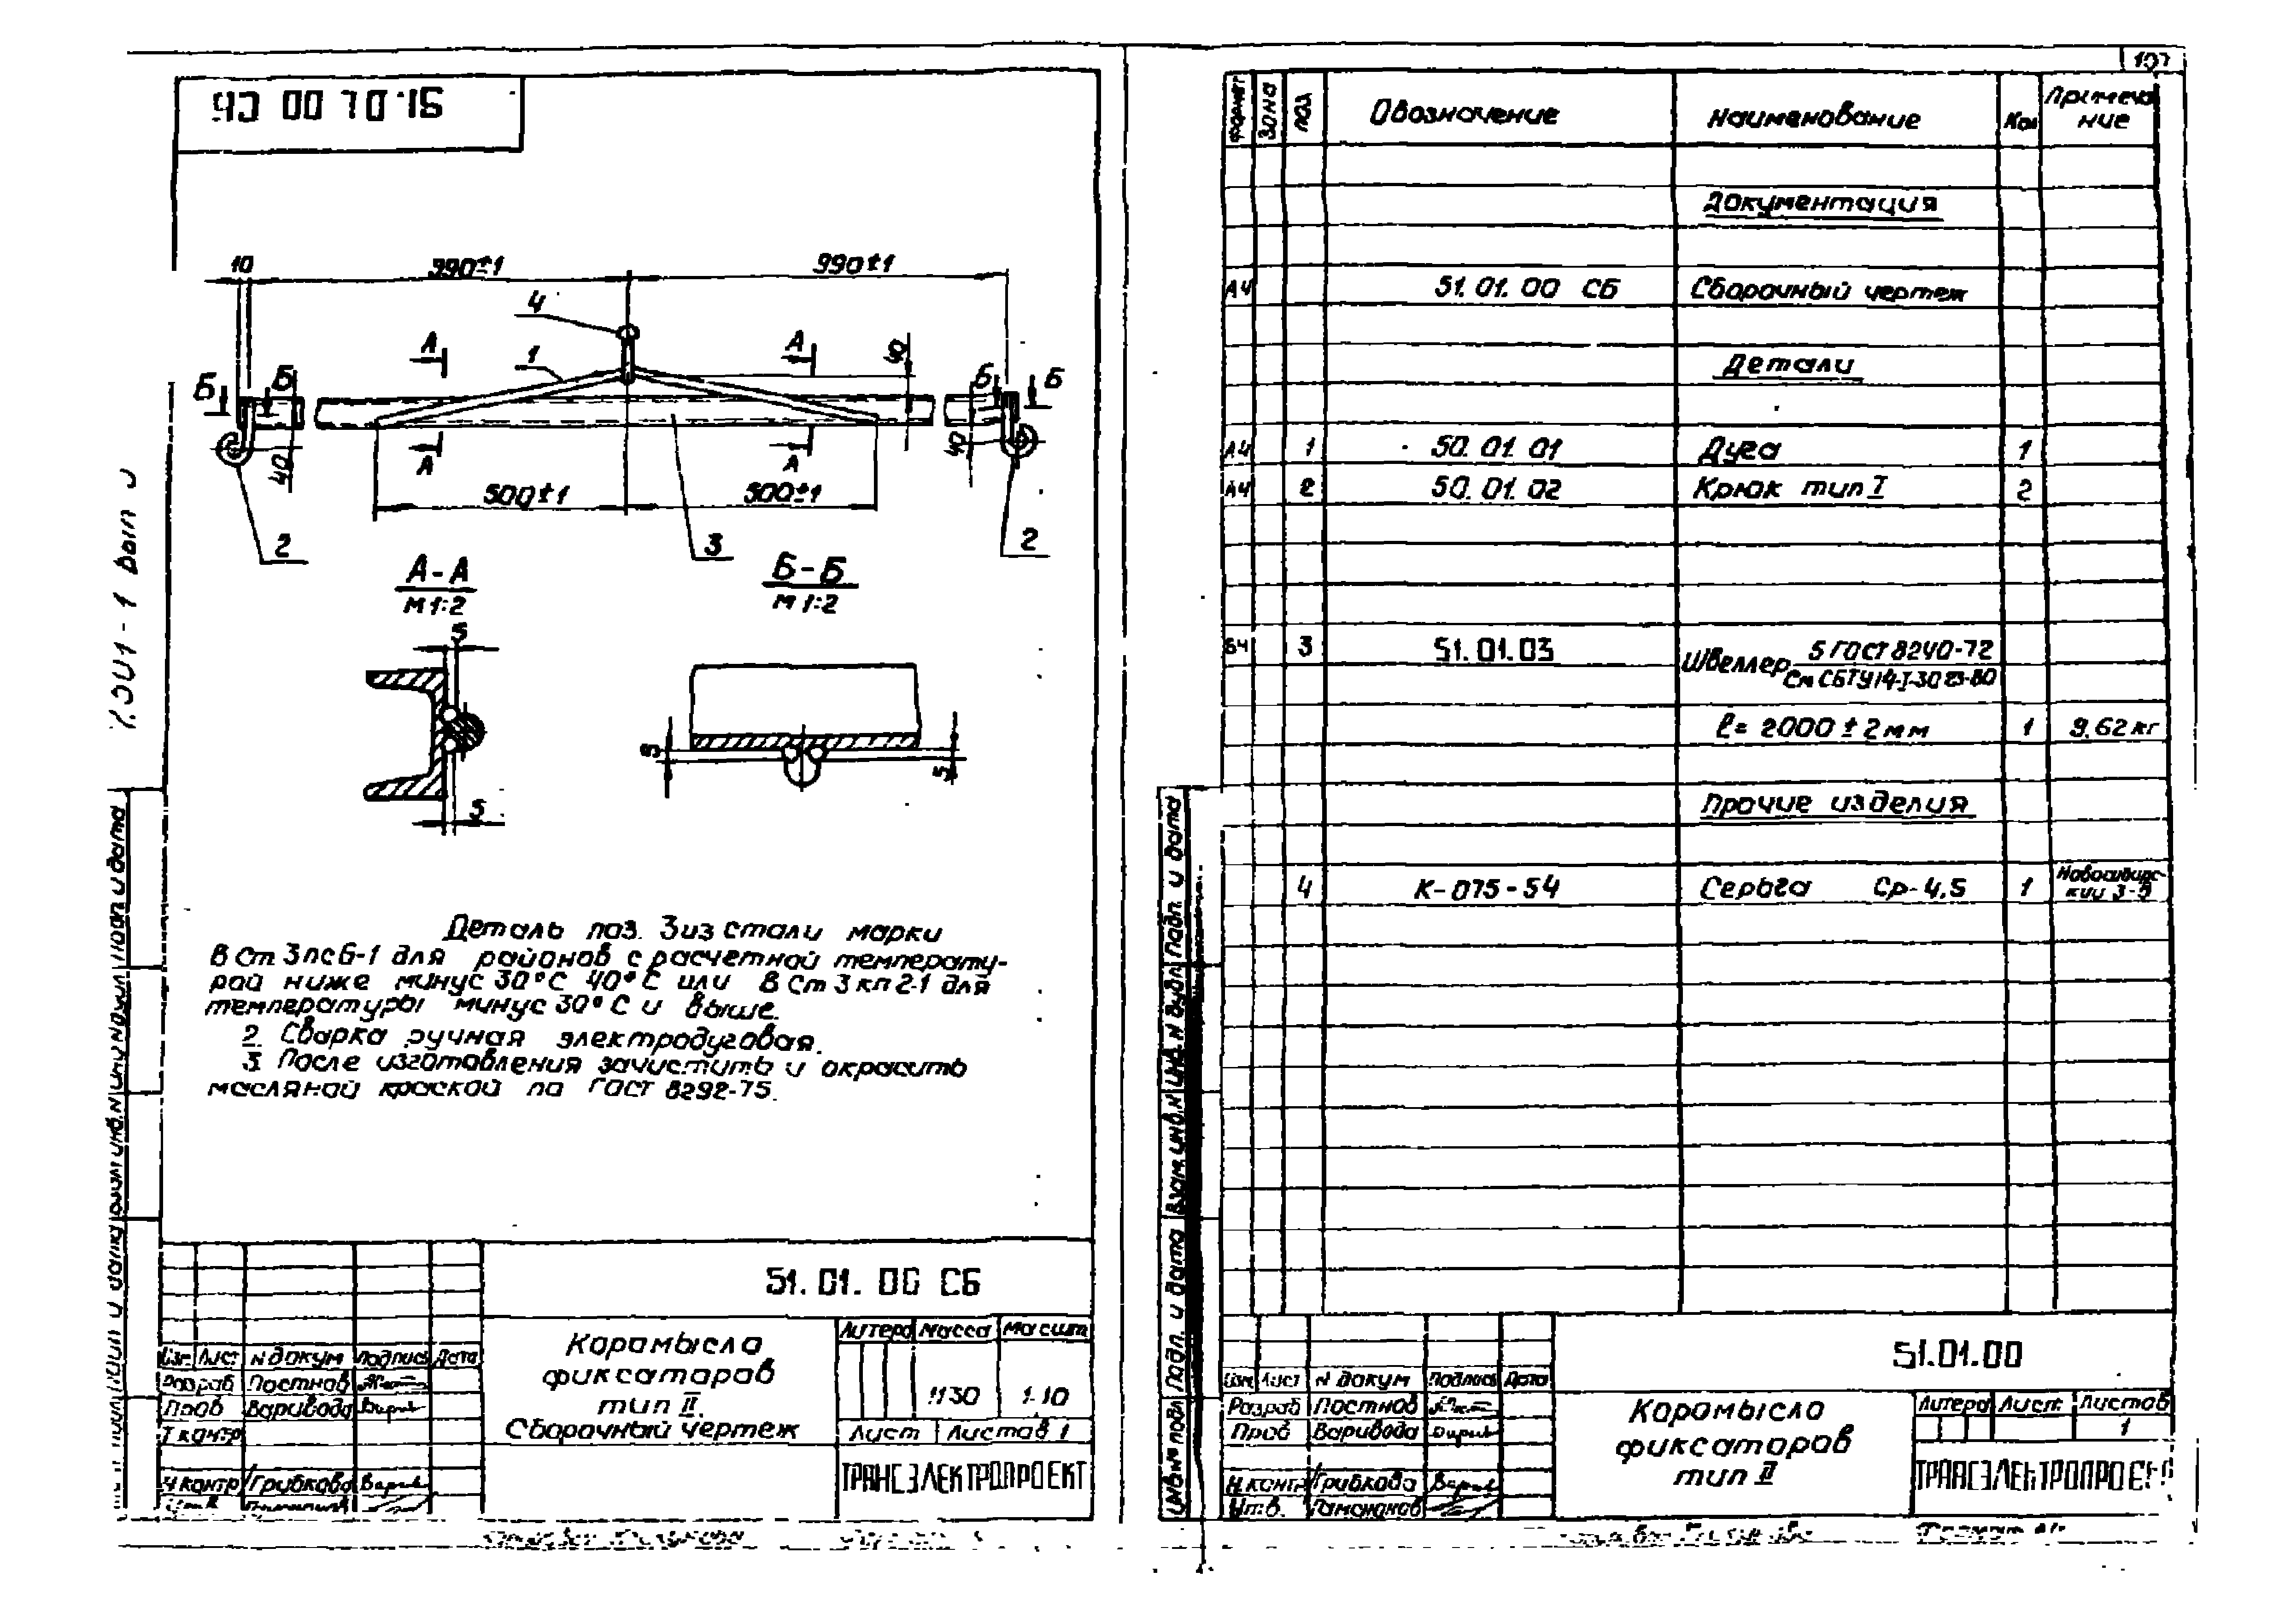 51.01 00 СБ
10
990±1
990±1
4
1
А
А
40
Б
Б
Б
Б
40
40
А
А
500±1
500±1
2
3
2
А-А
М 1:2
Б-Б
М 1:2
5
5
5
5
Деталь поз. 3 из стали марки
В Ст 3 пс 6-1 для районов с расчетной температу-
рой ниже минус 30°С 40°С или В Ст 3 кп 2-1 для
температуры минус 30°С и выше.
2. Сварка ручная электродуговая.
3 После изготовления зачистить и окрасить
масляной краской по ГОСТ 8292-75.
51. 01. 00 СБ
Коромысло
фиксаторов
тип II.
Сборочный чертеж
Литера Масса Масшт
1:10
Лист Листов 1
ТРАНСЭЛЕКТРОПРОЕКТ
Изм Лист N докум Подпись Дата
Разраб Постнов
Пров Варивода
Т контр
Н контр Грибкова
107
Формат Зона Поз Обозначение Наименование Кол Примеча
ние
Документация
А4 51. 01. 00 СБ Сборочный чертеж
Детали
А4 1 50. 01. 01 Дуга 1
А4 2 50. 01. 02 Крюк тип I 2
БЧ 3 51. 01. 03 Швеллер 5 ГОСТ 8240-72
l= 2000 ± 2 мм 1 9.62 кг
Прочие изделия
4 К-075-54 Серьга Ср-4,5 1 Новосибирс-
кий З-д
Подп. и дата
Инв. N дубл
Взам. инв. N
Подп. и дата
Инв № подл
51.01.00
Изм Лист N докум Подпись Дата
Разраб Постнов
Пров Варивода
Н.контр Грибкова
Утв.
Коромысло
фиксаторов
тип II
Литера Лист Листов
1
ТРАНСЭЛЕКТРОПРОЕКТ